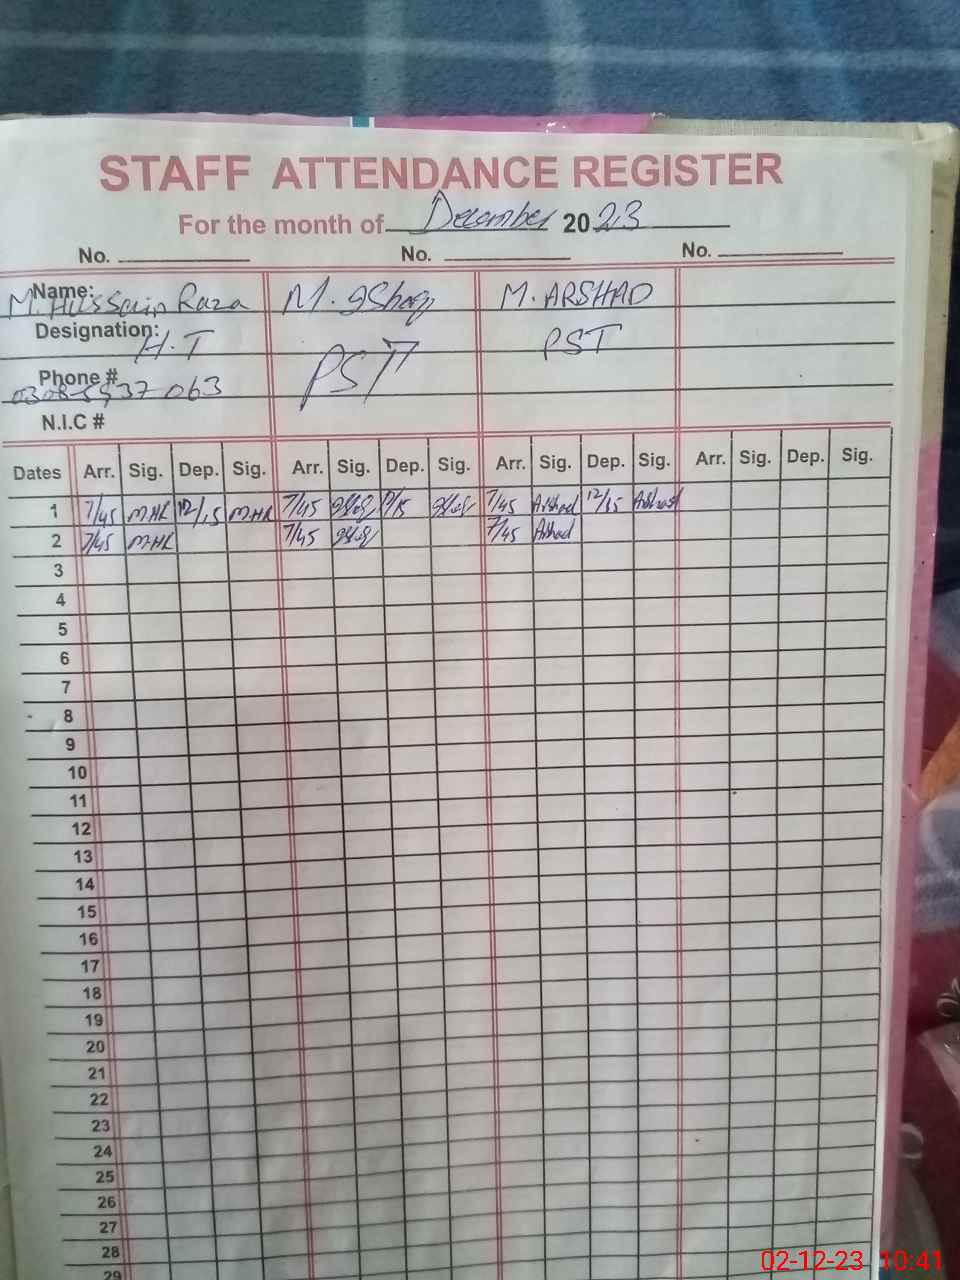 STAFF ATTENDANCE REGISTER
For the month of December 2023
No. No. No.
Name: M. Hussain Raza M. Ishaq M. ARSHAD
Designation: H.T PST PST
Phone # 063
N.I.C #
Dates Arr. Sig. Dep. Sig. Arr. Sig. Dep. Sig. Arr. Sig. Dep. Sig. Arr. Sig. Dep. Sig.
1 7/45 MHR 12/15 MHR 7/45 /15 7/45 Arshad 12/15 Arshad
2 7/45 MHR 7/45 7/45 Arshad
3
4
5
6
7
8
9
10
11
12
13
14
15
16
17
18
19
20
21
22
23
24
25
26
27
28
29
02-12-23 10:41